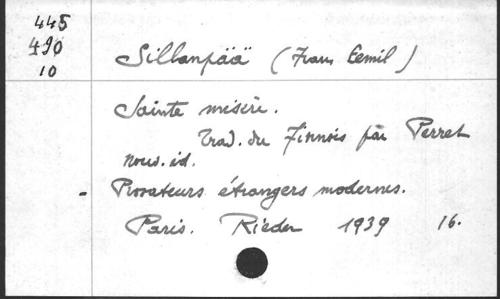 445
490
10
Sillanpää (Frans Eemil)
Sainte misère.
Trad. du Finnois par Perret
nouv. éd.
- Prosateurs étrangers modernes.
Paris. Rieder 1939 16.